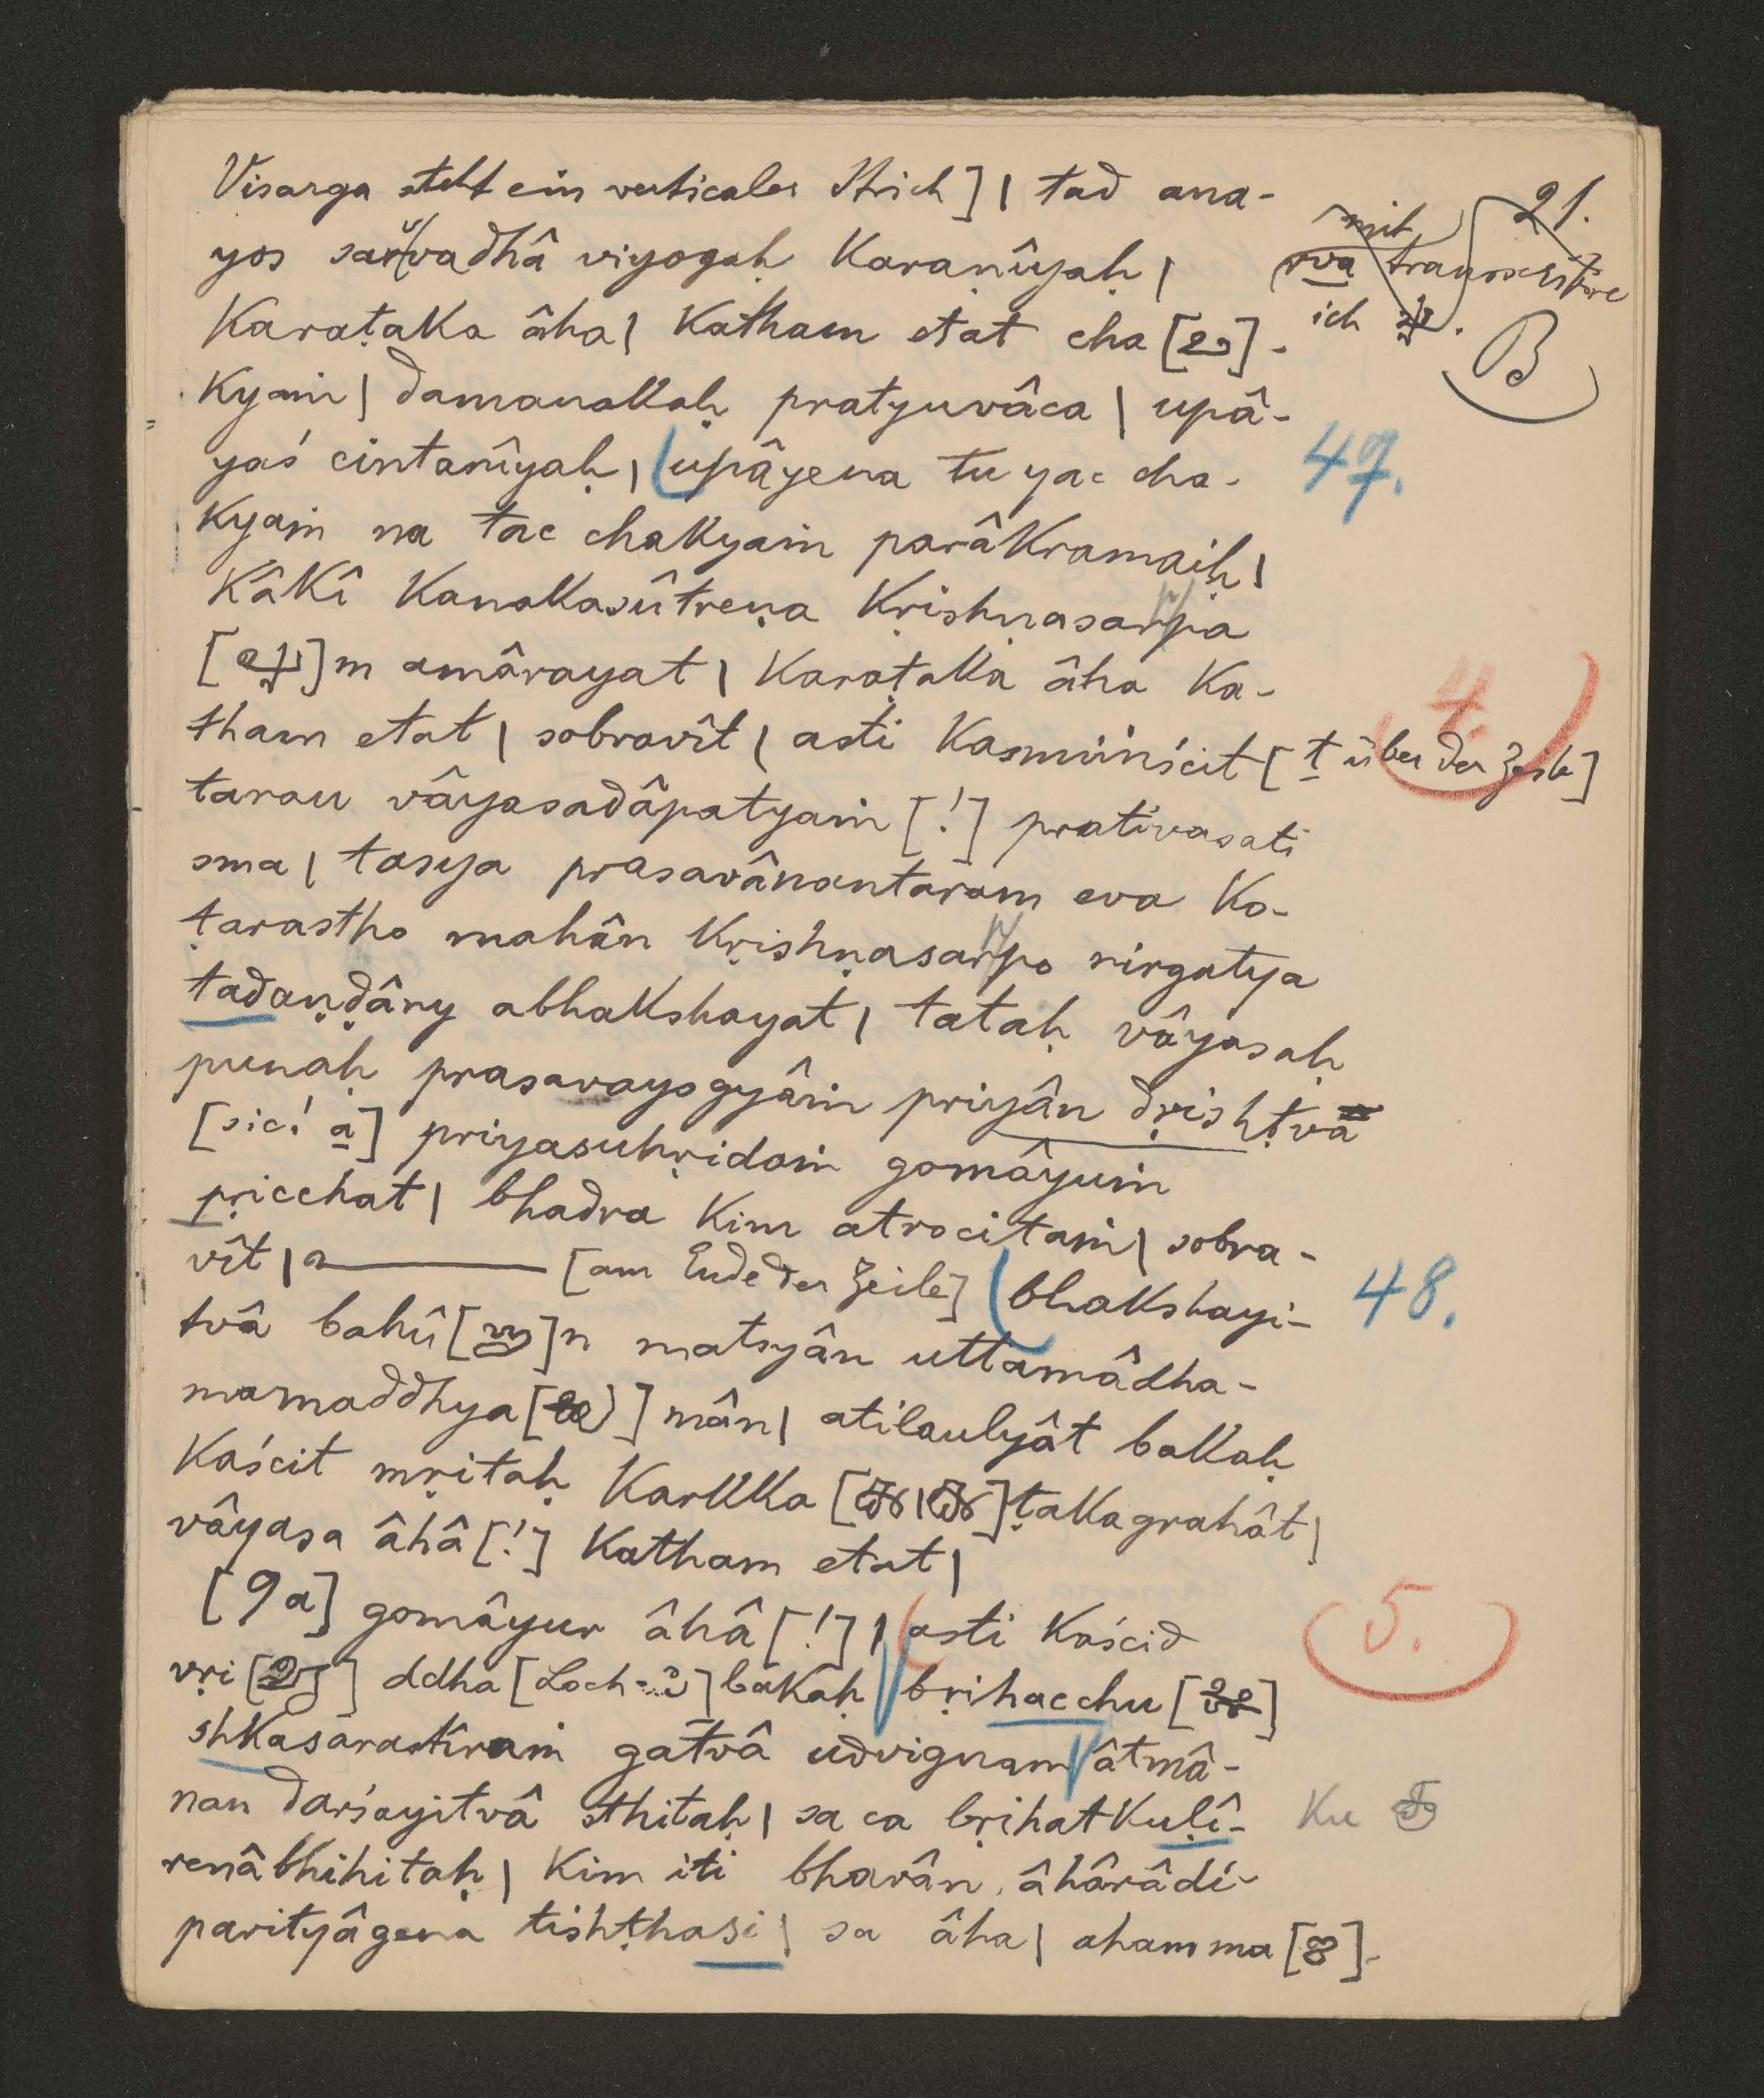 Visarga steht ein verticaler Strich] | tad ana-
yos sarvadhâ viyogaḥ karaṇîyaḥ |
mit
21.
rva transcribire
ich
B
Karaṭaka âha | katham etat cha [ ]-
kyaṁ | damanakaḥ pratyuvâca | upâ-
yaś cintanîyaḥ | upâyena tu yac cha-
47.
kyaṁ na tac chakyaṁ parâkramaiḥ |
kâkî kanakasûtreṇa kṛishṇasarpa
[ ]m amârayat | karaṭaka âha ka-
4.
tham etat | sobravît | asti kasmiṁścit [t über der Zeile]
tarau vâyasadâpatyaṁ [!] prativasati
sma | tasya prasavânantaram eva ko-
ṭarastho mahân kṛishṇasarpo nirgatya
tadaṇḍâny abhakshayat | tataḥ vâyasaḥ
punaḥ prasavayogyâṁ priyân dṛishṭvâ
[sic! a] priyasuhṛidaṁ gomâyuṁ
pṛicchat | bhadra kim atrocitaṁ | sobra-
vît | a——— [am Ende der Zeile] bhakshayi-
48.
tvâ bahû[ ]n matsyân uttamâdha-
mamaddhya[ ]mân | atilaulyât bakaḥ
kaścit mṛitaḥ karkka [ ]ṭakagrahât |
vâyasa âhâ [!] katham etat |
[9a] gomâyur âhâ [!] | asti kaścid
5.
vṛi [ ] ddha [Loch] bakaḥ bṛihacchu [ ]
shkasarastîraṁ gatvâ udvignam âtmâ-
nan darśayitvâ sthitaḥ | sa ca bṛihatkuḷî-
ku
renâbhihitaḥ | kim iti bhavân âhârâdi-
parityâgena tishṭhasi | sa âha | aham ma [ ]-